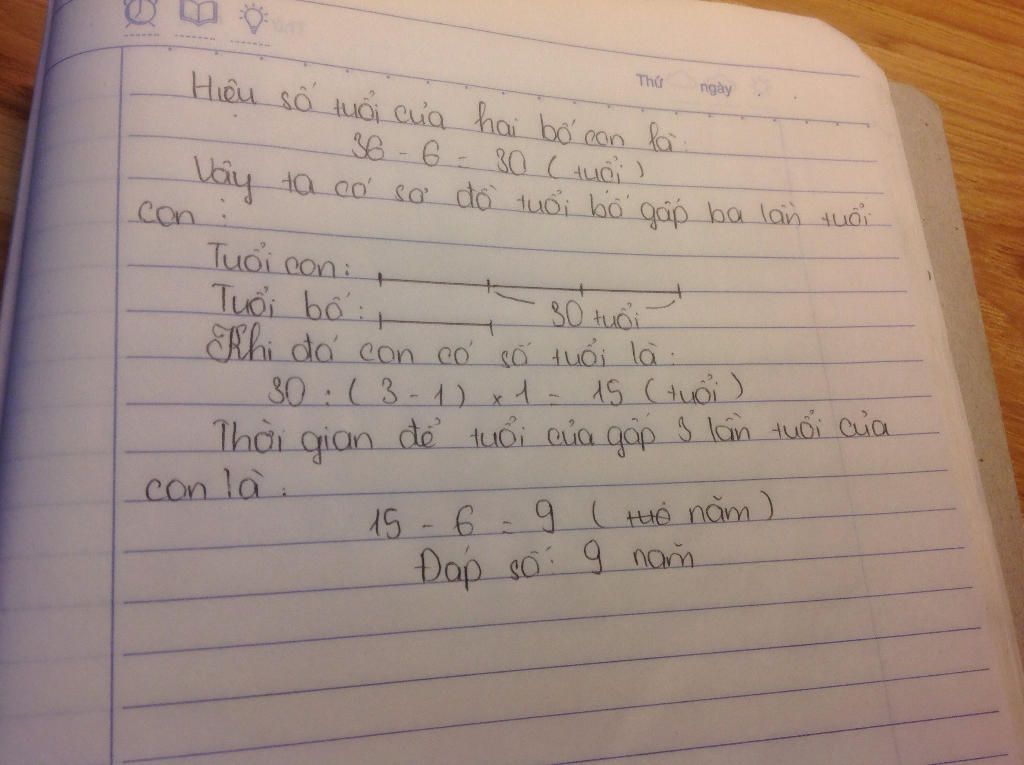 Thứ ngày
Hiệu số tuổi của hai bố con là:
36 - 6 = 30 (tuổi)
Vậy ta có sơ đồ tuổi bố gấp ba lần tuổi
con :
Tuổi con:
Tuổi bố : 30 tuổi
Khi đó con có số tuổi là:
30 : ( 3 - 1 ) x 1 = 15 (tuổi)
Thời gian để tuổi của gấp 3 lần tuổi của
con là:
15 - 6 = 9 ( năm )
Đáp số: 9 năm